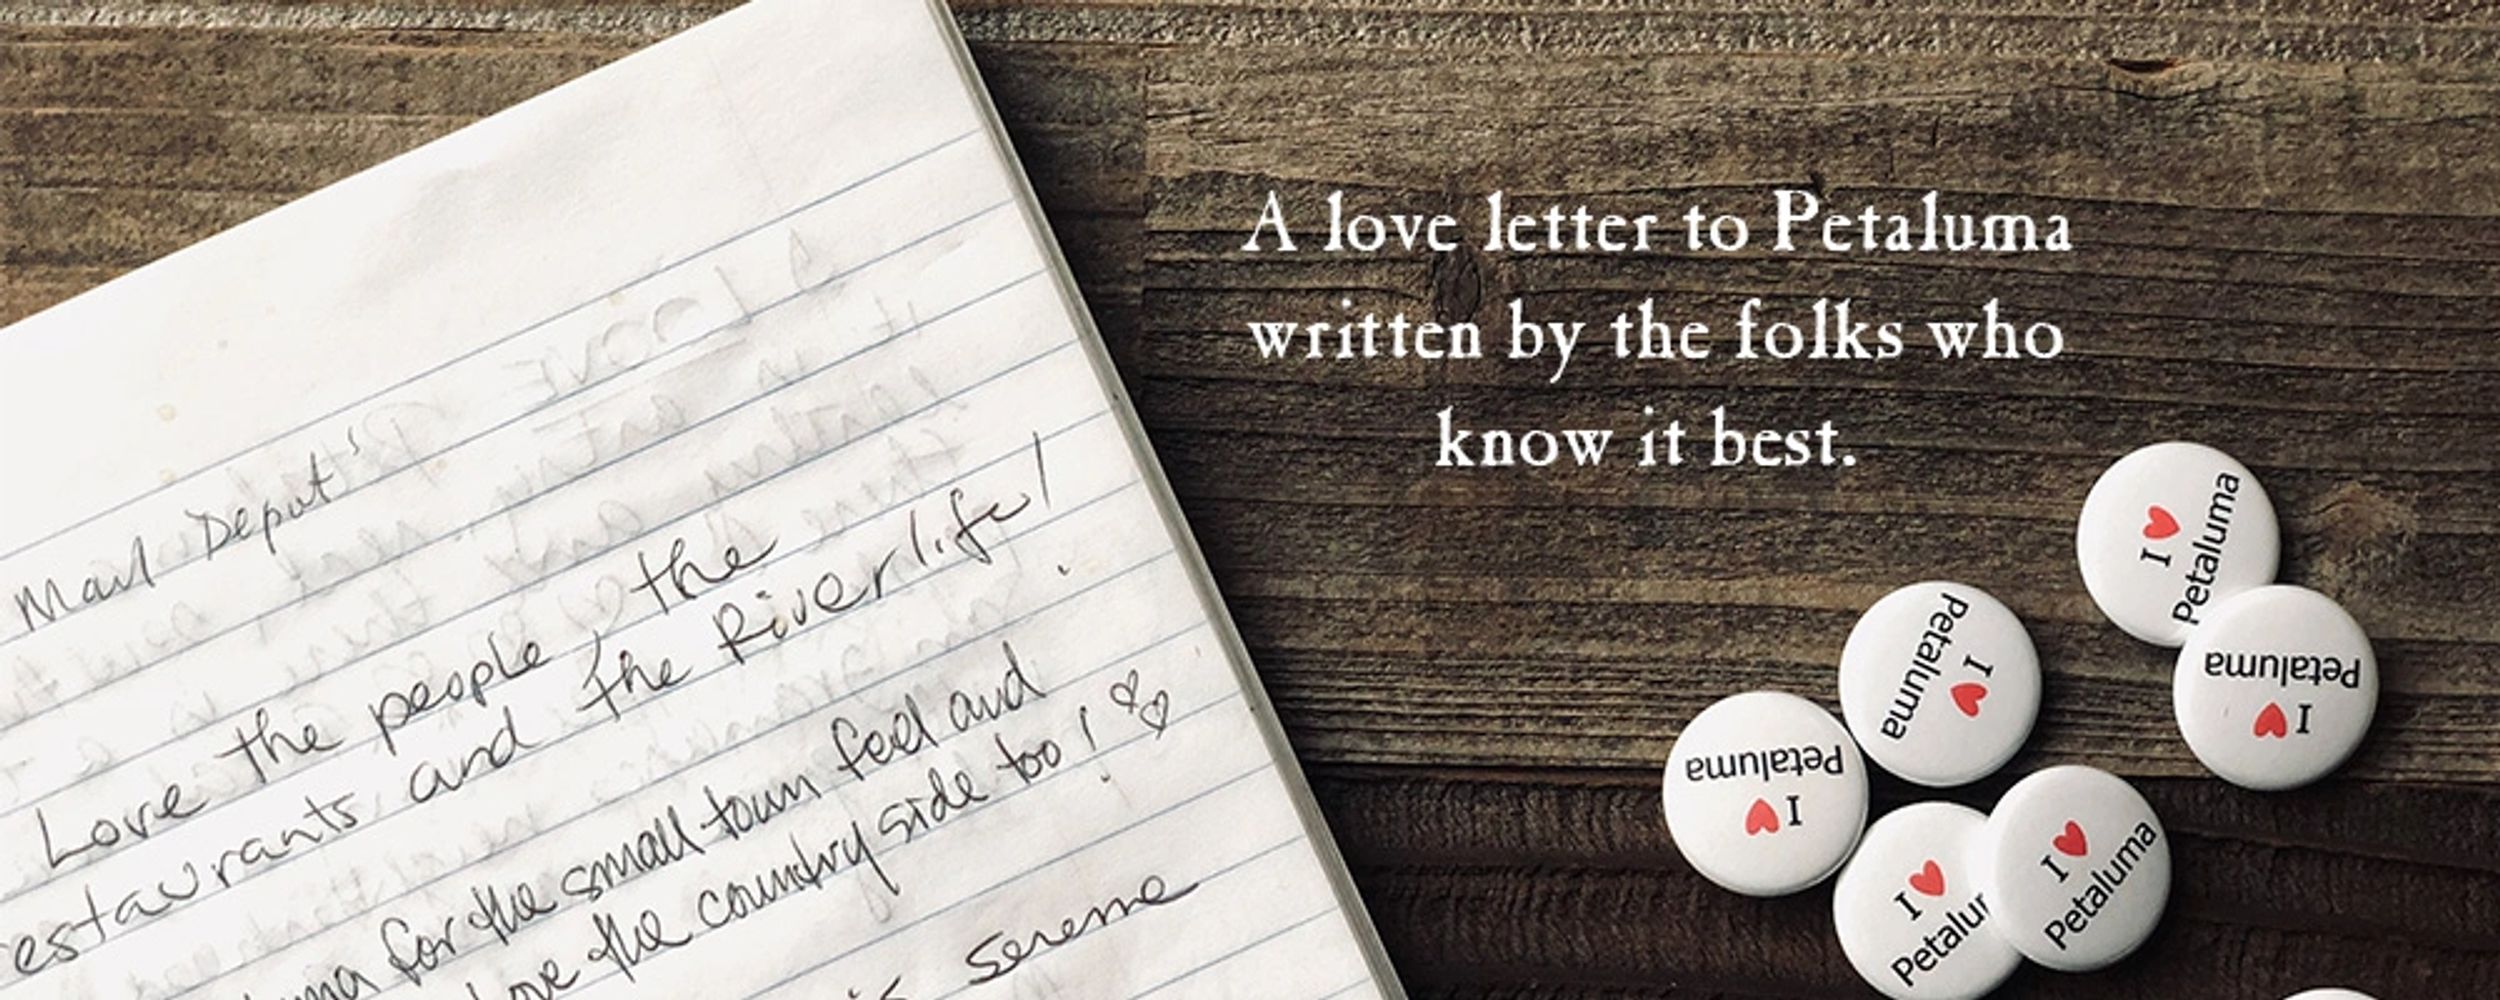 Mail Depot'
Love the people, the
estaurants and the River life!
uma for the small town feel and
ove the country side too!
is serene
A love letter to Petaluma
written by the folks who
know it best.
I ♥
Petaluma
I ♥
Petaluma
I ♥
Petaluma
I ♥
Petaluma
I ♥
Petalu
I ♥
Petaluma